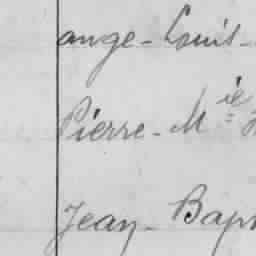 ange - Louis -
Pierre - Mie
Jean - Bap